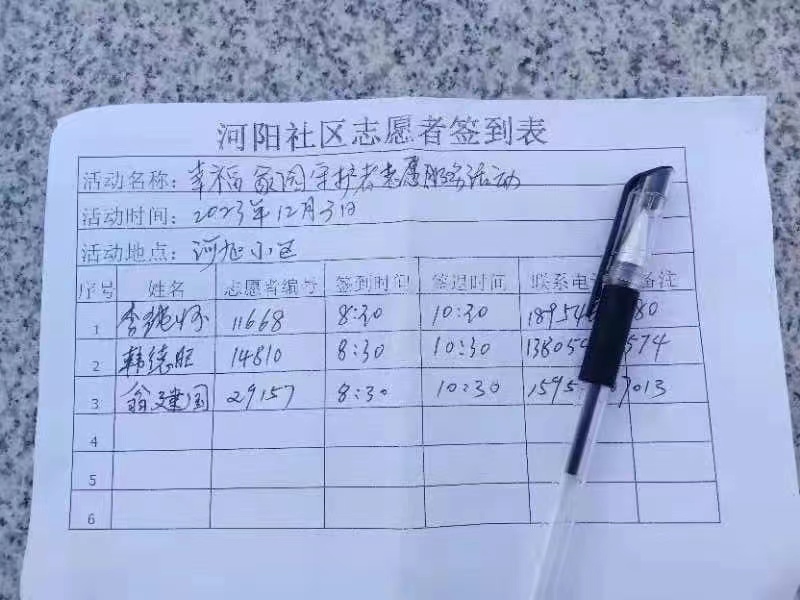 河阳社区志愿者签到表
活动名称：幸福家园守护者志愿服务活动
活动时间：2023年12月3日
活动地点：河旭小区
序号 姓名 志愿者编号 签到时间 签退时间 联系电 备注
1 李 11668 8:30 10:30 18954 80
2 韩德胜 14810 8:30 10:30 138054 574
3 翁建国 29157 8:30 10:30 1595 7013
4
5
6